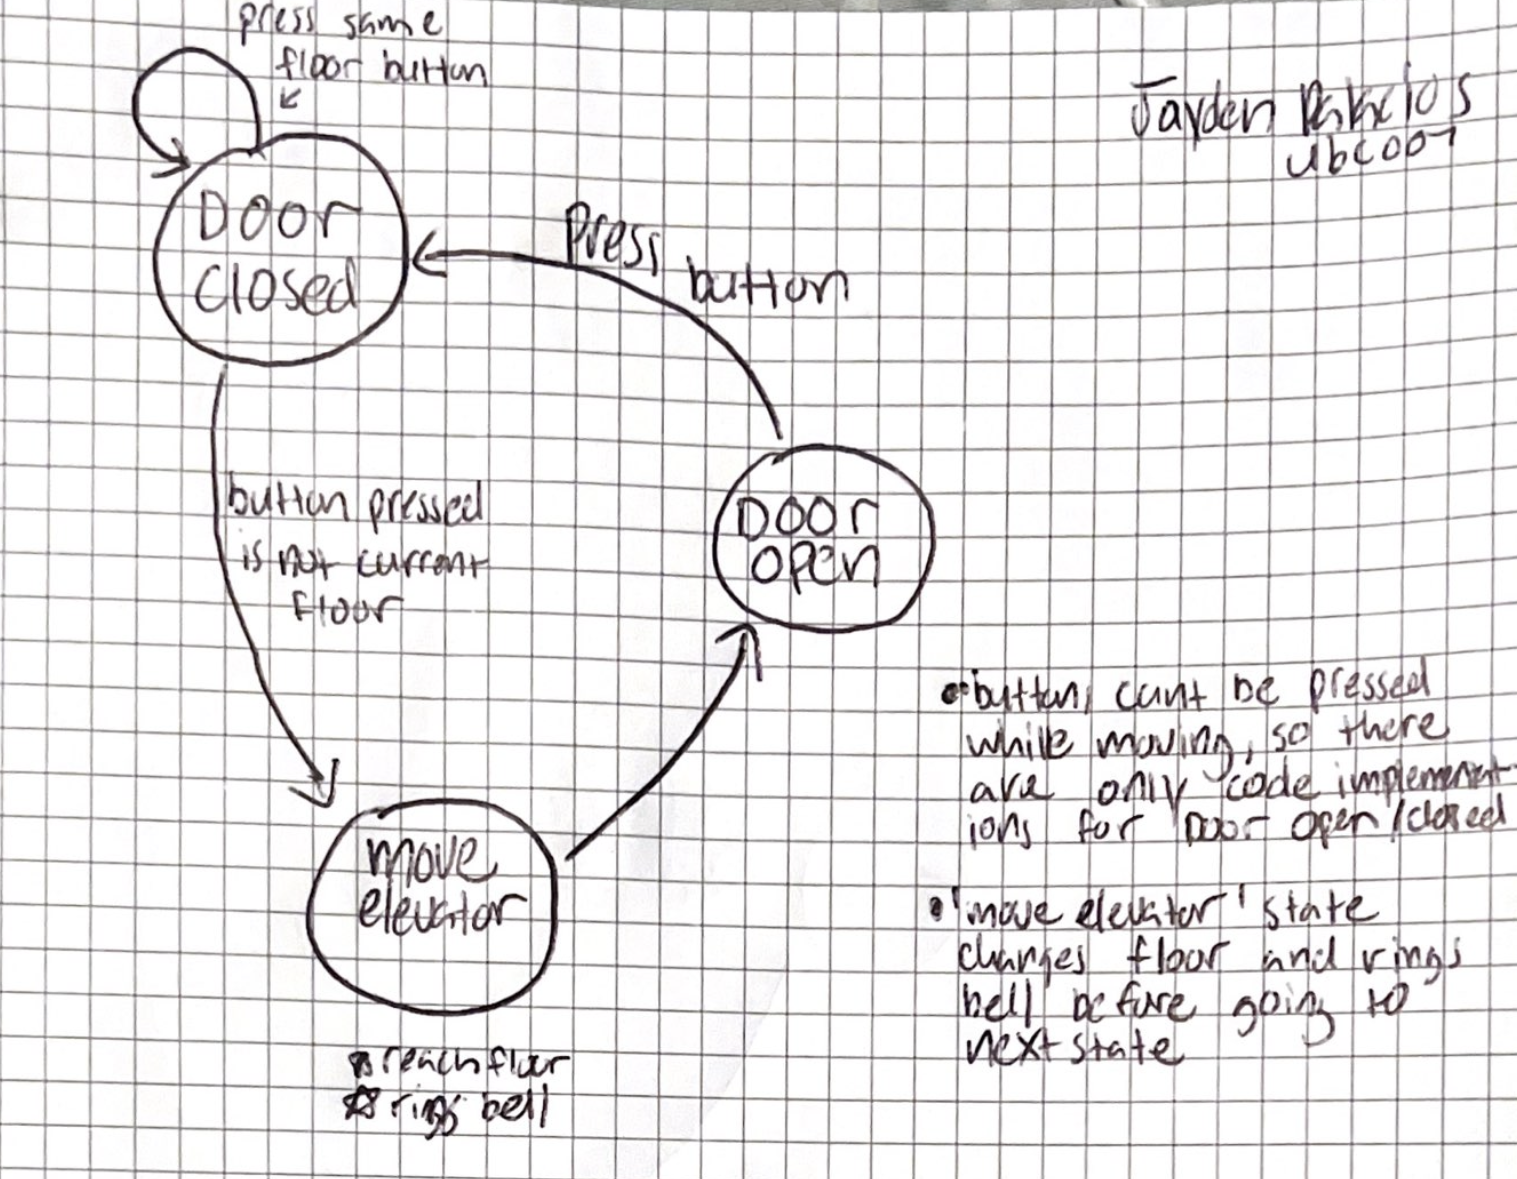 press same
floor button
Jayden Palacios
ubc007
Door
closed
press
button
button pressed
is not current
floor
Door
open
move
elevator
reach floor
rings bell
• button cant be pressed
while moving, so there
are only code implementat-
ions for Door open/closed
• 'move elevator' state
changes floor and rings
bell before going to
next state